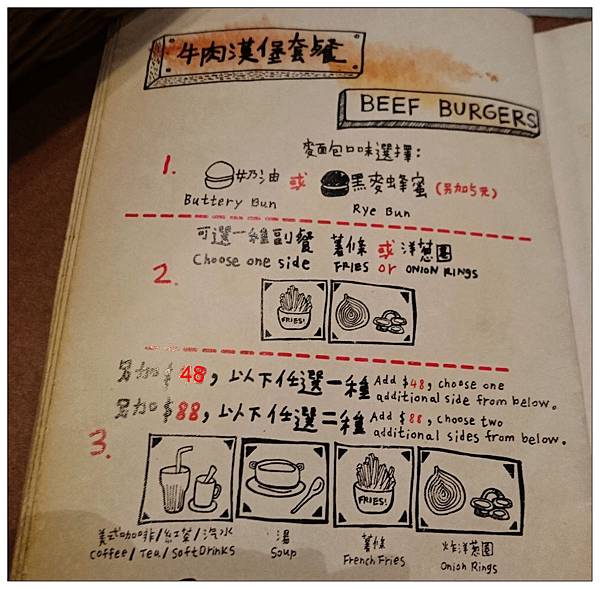 牛肉漢堡套餐
BEEF BURGERS
麵包口味選擇:
1. 奶油 或 黑麥蜂蜜 (另加5元)
Buttery Bun Rye Bun
可選一種副餐 薯條 或 洋蔥圈
Choose one side FRIES or ONION RINGS
2.
FRIES!
另加$48,以下任選一種 Add $48, choose one
additional side from below.
另加$88,以下任選二種 Add $88, choose two
additional sides from below.
3.
FRIES!
美式咖啡/紅茶/汽水 湯 薯條 炸洋蔥圈
Coffee/Tea/Soft Drinks Soup French Fries Onion Rings